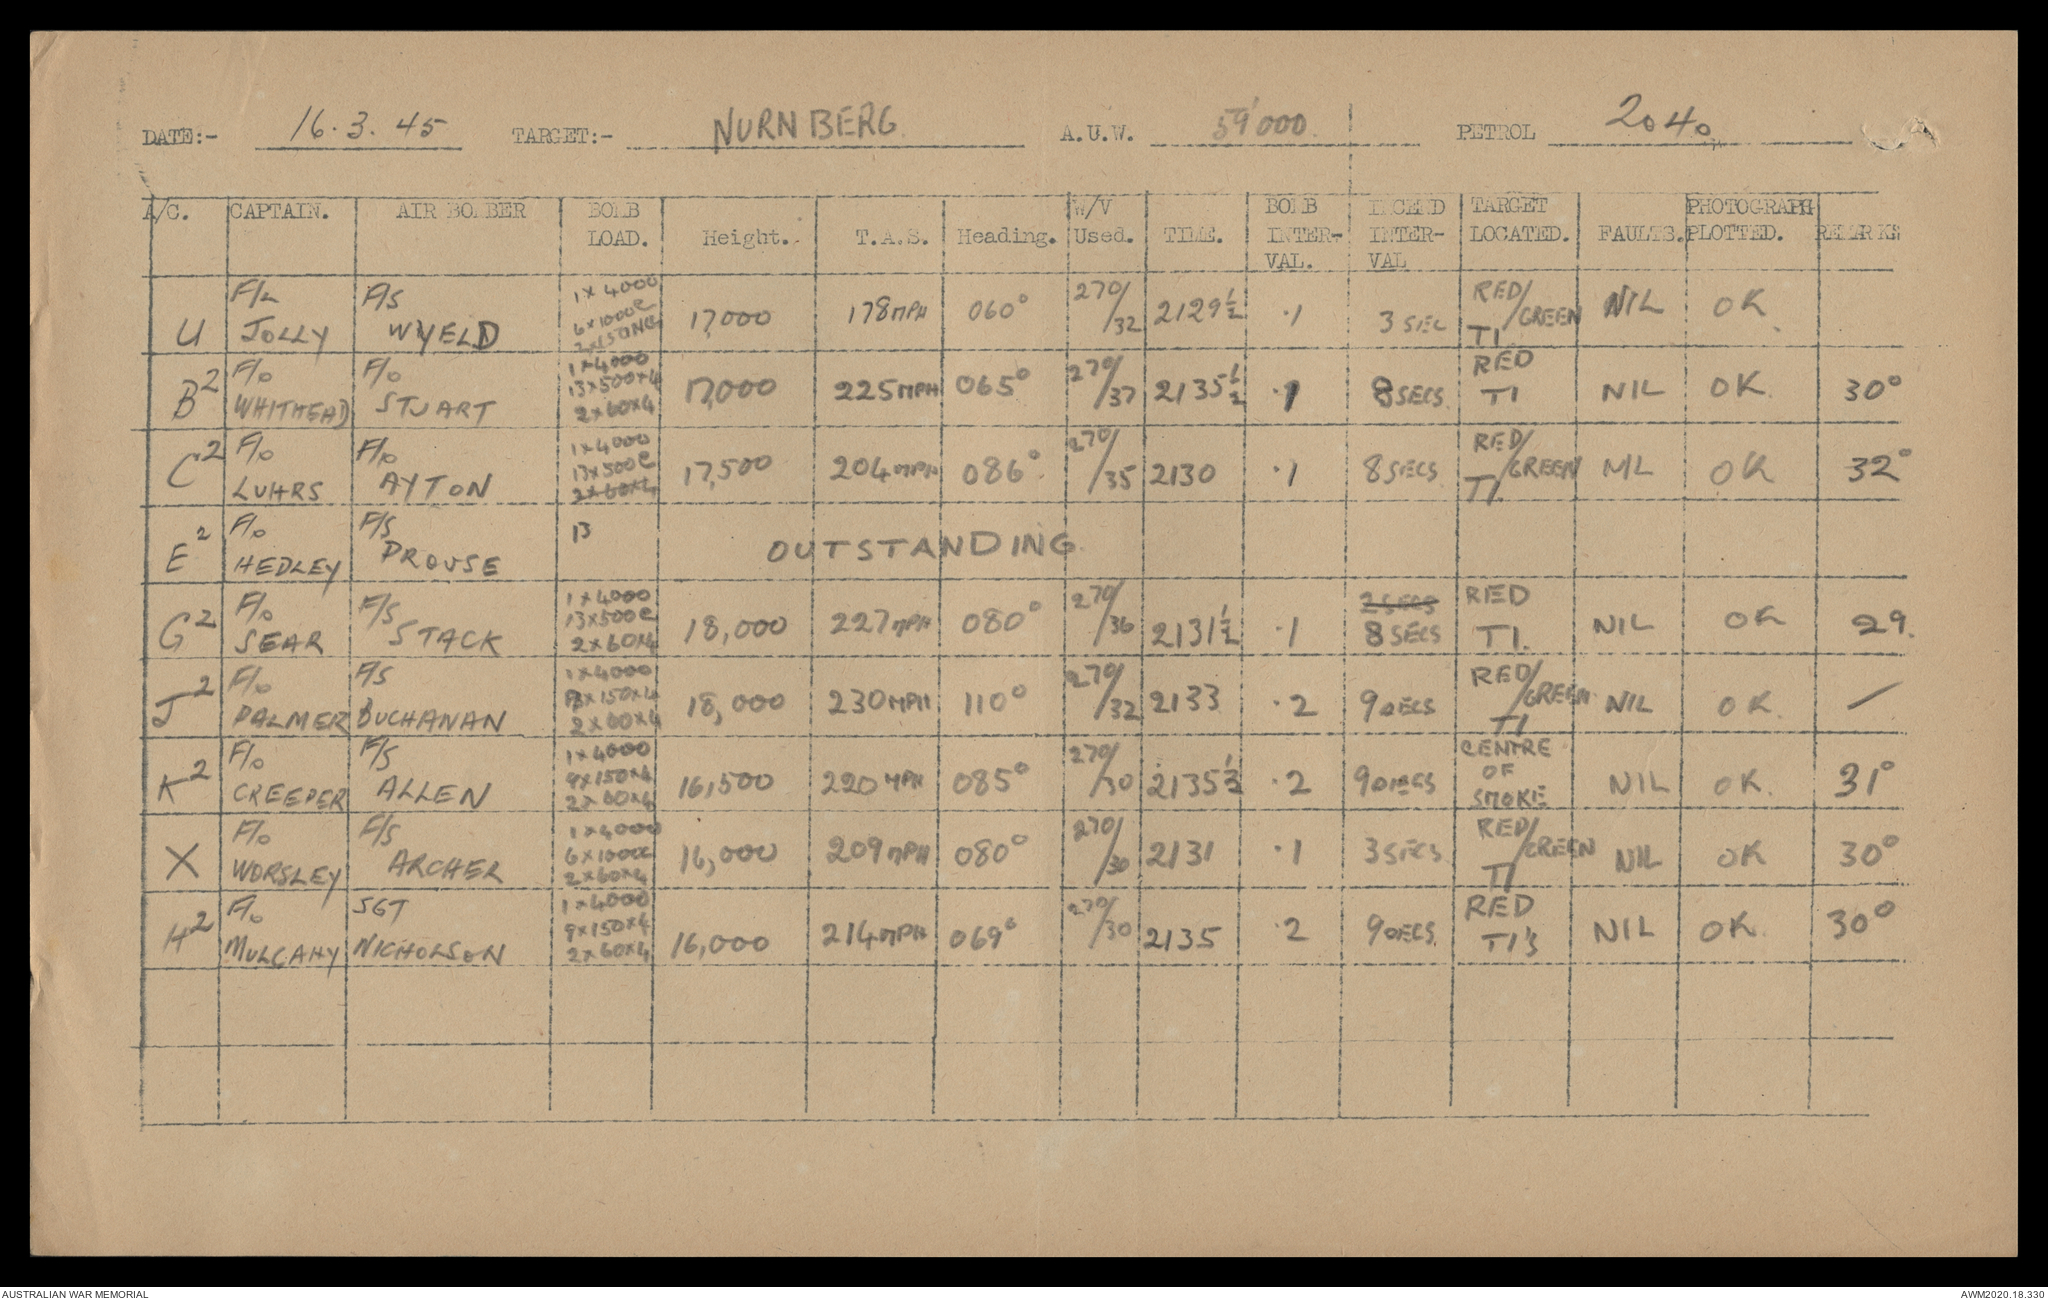 DATE:- 16.3.45 TARGET:- NURNBERG A.U.W. 59'000 PETROL 2040
A/C. CAPTAIN. AIR BOMBER BOMB LOAD. Height. T.A.S. Heading. W/V Used. TIME. BOMB INTER-VAL. INCEND INTER-VAL TARGET LOCATED. FAULTS. PHOTOGRAPH PLOTTED. REMARKS
U F/L JOLLY F/S WYELD 1 x 4000 6x1000 17,000 178 MPH 060° 270/32 2129½ .1 3 SEC RED/GREEN TI NIL OK
B2 F/O WHITHEAD F/O STUART 1x4000 13x500x4 2x60x4 17,000 225 MPH 065° 270/37 2135½ .1 8 SECS RED TI NIL OK 30°
C2 F/O LUHRS F/O AYTON 1x4000 13x500 2x60x4 17,500 204 MPH 086° 270/35 2130 .1 8 SECS RED/GREEN TI. NIL OK 32°
E2 F/O HEDLEY F/S PROUSE 13 OUTSTANDING
G2 F/O SEAR F/S STACK 1x4000 13x500 2x60x4 18,000 227 MPH 080° 270/36 2131½ .1 2 SECS 8 SECS RED TI. NIL OK 29.
J2 F/O PALMER F/S BUCHANAN 1x4000 x150x4 2x60x4 18,000 230 MPH 110° 270/32 2133 .2 RED/GREEN TI NIL OK —
K2 F/O CREEPER F/S ALLEN 1x4000 9x150x4 2x60x4 16,500 220 MPH 085° 270/30 2135½ .2 CENTRE OF SMOKE NIL OK. 31°
X F/O WORSLEY F/S ARCHER 1x4000 6x1000 2x60x4 16,000 209 MPH 080° 270/30 2131 .1 3 SECS RED/GREEN TI NIL OK 30°
H2 F/O MULCAHY SGT NICHOLSON 1x4000 9x150x4 2x60x4 16,000 214 MPH 069° 270/30 2135 .2 RED TI's NIL OK 30°
AUSTRALIAN WAR MEMORIAL AWM2020.18.330